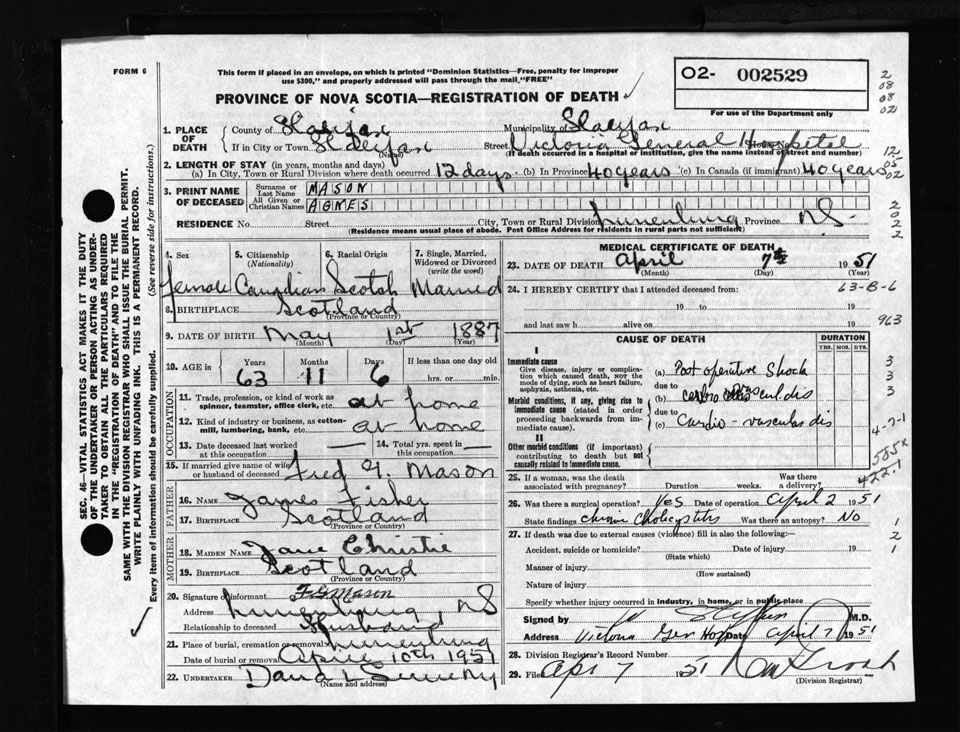 FORM 6
This form if placed in an envelope, on which is printed "Dominion Statistics—Free, penalty for improper
use $300," and properly addressed will pass through the mail, "FREE"
O2- 002529
For use of the Department only
PROVINCE OF NOVA SCOTIA—REGISTRATION OF DEATH
1. PLACE OF DEATH
County of Halifax Municipality of Halifax
If in City or Town Halifax (Name) Street Victoria General Hospital
(If death occurred in a hospital or institution, give the name instead of street and number)
2. LENGTH OF STAY (in years, months and days)
(a) In City, Town or Rural Division where death occurred 12 days (b) In Province 40 years (c) In Canada (if immigrant) 40 years
3. PRINT NAME OF DECEASED
Surname or Last Name MASON
All Given or Christian Names AGNES
RESIDENCE No. Street City, Town or Rural Division Lunenburg Province NS
(Residence means usual place of abode. Post Office Address for residents in rural parts not sufficient)
4. Sex 5. Citizenship (Nationality) 6. Racial Origin 7. Single, Married, Widowed or Divorced (write the word)
Female Canadian Scotch Married
8. BIRTHPLACE Scotland
(Province or Country)
9. DATE OF BIRTH May 1st 1887
(Month) (Day) (Year)
10. AGE in Years Months Days If less than one day old
63 11 6 hrs. or min.
OCCUPATION
11. Trade, profession or kind of work as spinner, teamster, office clerk, etc. at home
12. Kind of industry or business, as cotton-mill, lumbering, bank, etc. at home
13. Date deceased last worked at this occupation 14. Total yrs. spent in this occupation
15. If married give name of wife or husband of deceased Fred G. Mason
FATHER
16. NAME James Fisher
17. BIRTHPLACE Scotland
(Province or Country)
MOTHER
18. MAIDEN NAME Jane Christie
19. BIRTHPLACE Scotland
(Province or Country)
20. Signature of informant F G Mason
Address Lunenburg, NS
Relationship to deceased Husband
21. Place of burial, cremation or removal Lunenburg
Date of burial or removal April 10th 1951
22. UNDERTAKER
(Name and address)
MEDICAL CERTIFICATE OF DEATH
23. DATE OF DEATH April 7th 1951
(Month) (Day) (Year)
24. I HEREBY CERTIFY that I attended deceased from: 63-B-6
19 to 19
and last saw h alive on 19 963
CAUSE OF DEATH DURATION
YRS. MOS. DYS.
I
Immediate cause
Give disease, injury or complication which caused death, NOT the mode of dying, such as heart failure, asphyxia, asthenia, etc.
(a) Post operative Shock
due to
Morbid conditions, if any, giving rise to immediate cause (stated in order proceeding backwards from immediate cause).
(b)
due to
(c) Cardio-vascular dis
II
Other morbid conditions (if important) contributing to death but not causally related to immediate cause.
25. If a woman, was the death associated with pregnancy? Duration weeks. Was there a delivery?
26. Was there a surgical operation? Yes Date of operation April 2 1951
State findings Was there an autopsy? No
27. If death was due to external causes (violence) fill in also the following:—
Accident, suicide or homicide? Date of injury 19
(State which)
Manner of injury
(How sustained)
Nature of injury
Specify whether injury occurred in industry, in home, or in public place
Signed by M.D.
Address Victoria Gen Hosp Date April 7 1951
28. Division Registrar's Record Number
29. Filed Apr 7 1951
(Division Registrar)
SEC. 46—VITAL STATISTICS ACT MAKES IT THE DUTY
OF THE UNDERTAKER OR PERSON ACTING AS UNDER-
TAKER TO OBTAIN ALL THE PARTICULARS REQUIRED
IN THE "REGISTRATION OF DEATH" AND TO FILE THE
SAME WITH THE DIVISION REGISTRAR WHO SHALL ISSUE THE BURIAL PERMIT.
WRITE PLAINLY WITH UNFADING INK. THIS IS A PERMANENT RECORD.
Every item of information should be carefully supplied. (See reverse side for instructions.)
2
08
08
02
12
05
02
2
0
2
2
3
3
3
4-7-1
585x
422.1
1
2
1